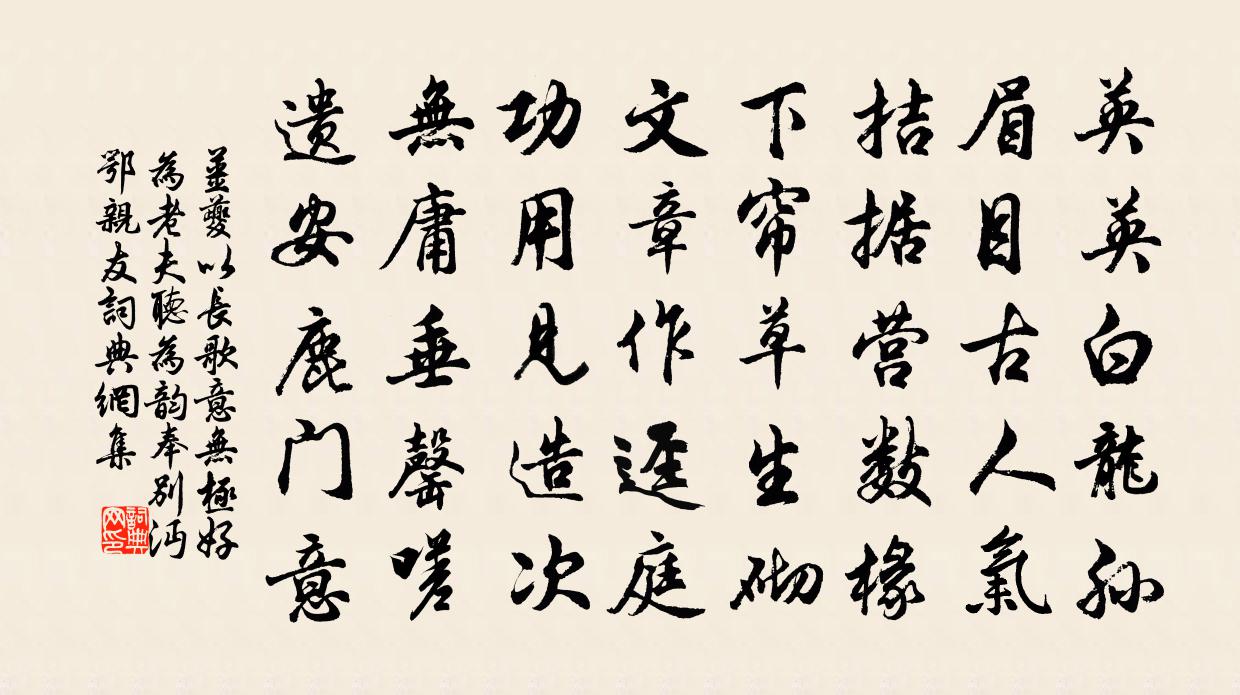 英英白龍孫
眉目古人氣
拮据营數椽
下帘草生砌
文章作逕庭
功用見造次
無庸垂罄嗟
遺安鹿門意
薑夔以長歌意無極好
為老夫聽為韵奉別沔
鄂親友詞典網集
詞典网印